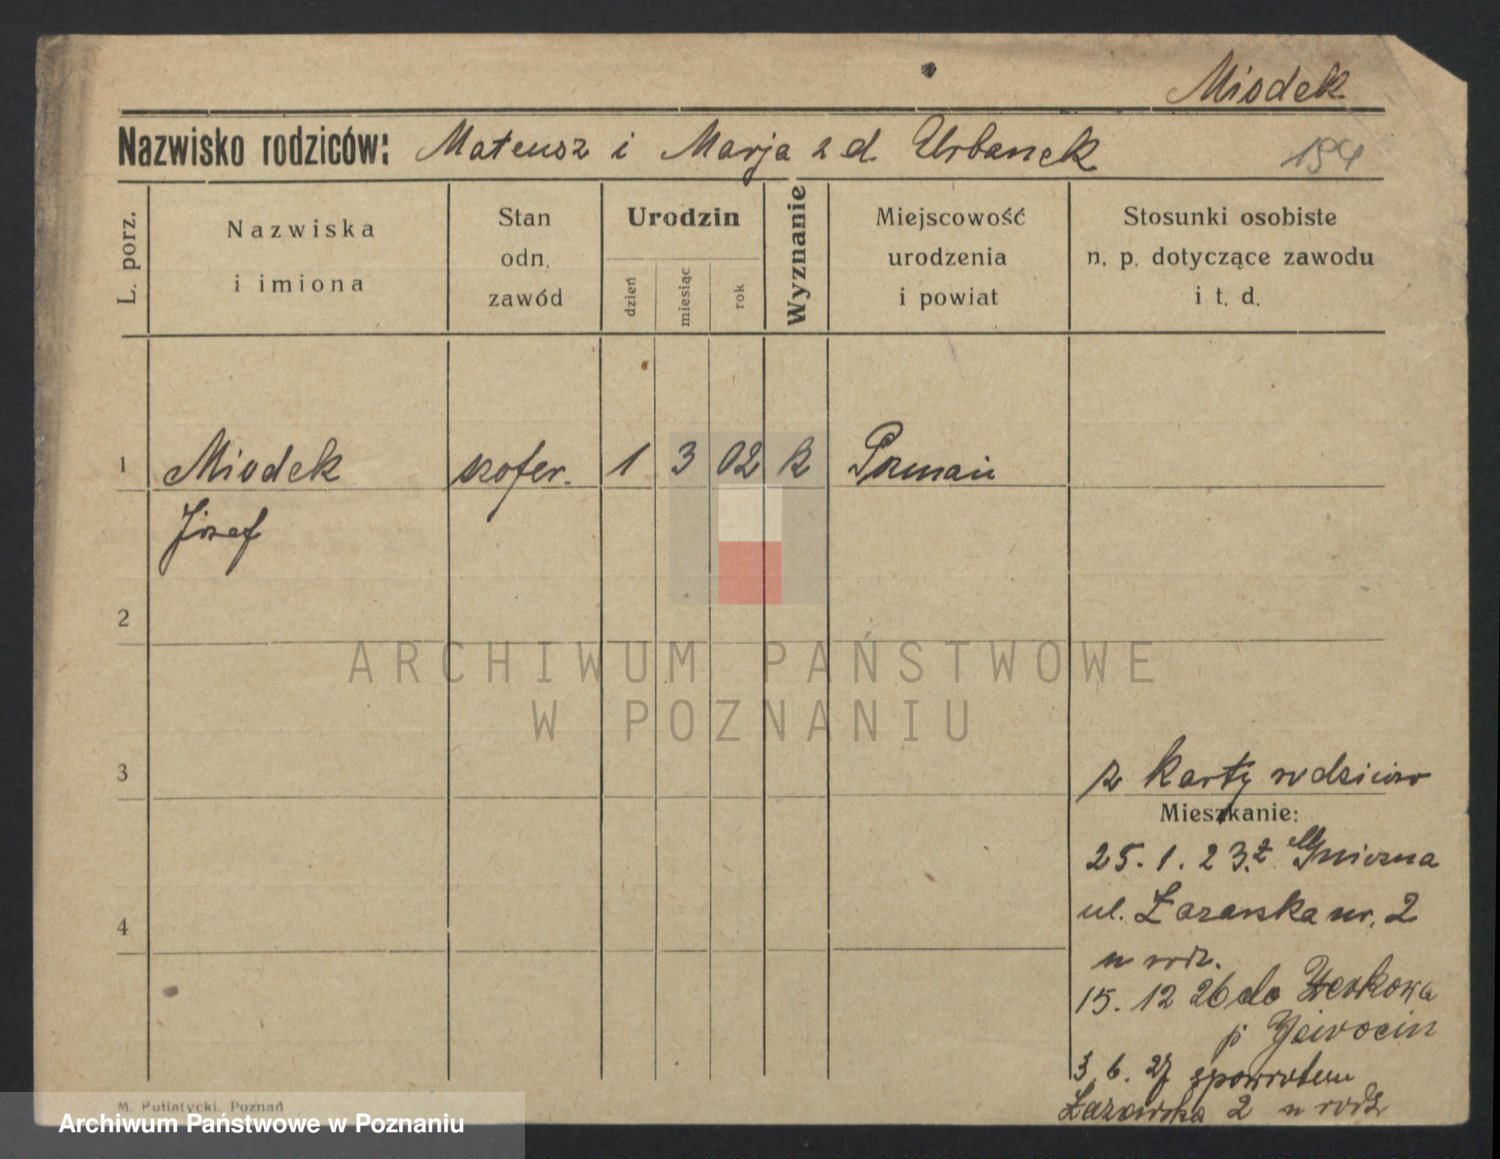 Miodek
Nazwisko rodziców: Mateusz i Marja z d. Urbanek
194
L. porz.
Nazwiska
i imiona
Stan
odn.
zawód
Urodzin
dzień
miesiąc
rok
Wyznanie
Miejscowość
urodzenia
i powiat
Stosunki osobiste
n. p. dotyczące zawodu
i t. d.
1 Miodek szofer. 1 3 02 k Poznań
Józef
2
ARCHIWUM PAŃSTWOWE
W POZNANIU
3 z karty rodziców
Mieszkanie:
25. 1. 23. z Gniezna
4 ul. Łazarska nr. 2
u rodz.
15. 12 26 do Żerkowa
p Jarocin
3. 6. 27 zpowrotem
Łazarska 2 u rodz
M. Putiatycki, Poznań
Archiwum Państwowe w Poznaniu